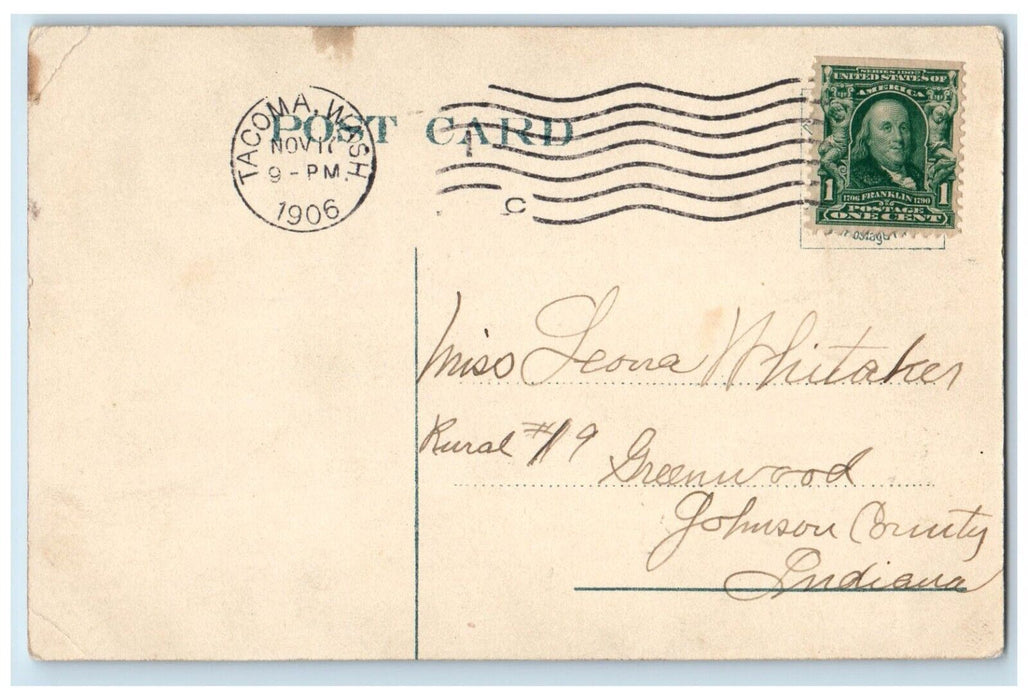 POST CARD
TACOMA, WASH.
NOV 17
9 - PM.
1906
C
SERIES 1902
UNITED STATES OF
AMERICA
1 1
1706 FRANKLIN 1790
POSTAGE
ONE CENT
Postage
Miss Leona Whitaker
Rural #19
Greenwood
Johnson County
Indiana